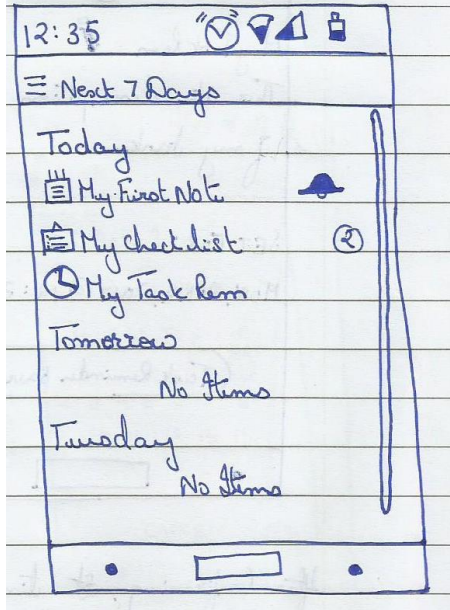 12:35
Next 7 Days
Today
My First Note
My Checklist
2
My Task Rem
Tomorrow
No Items
Tuesday
No Items